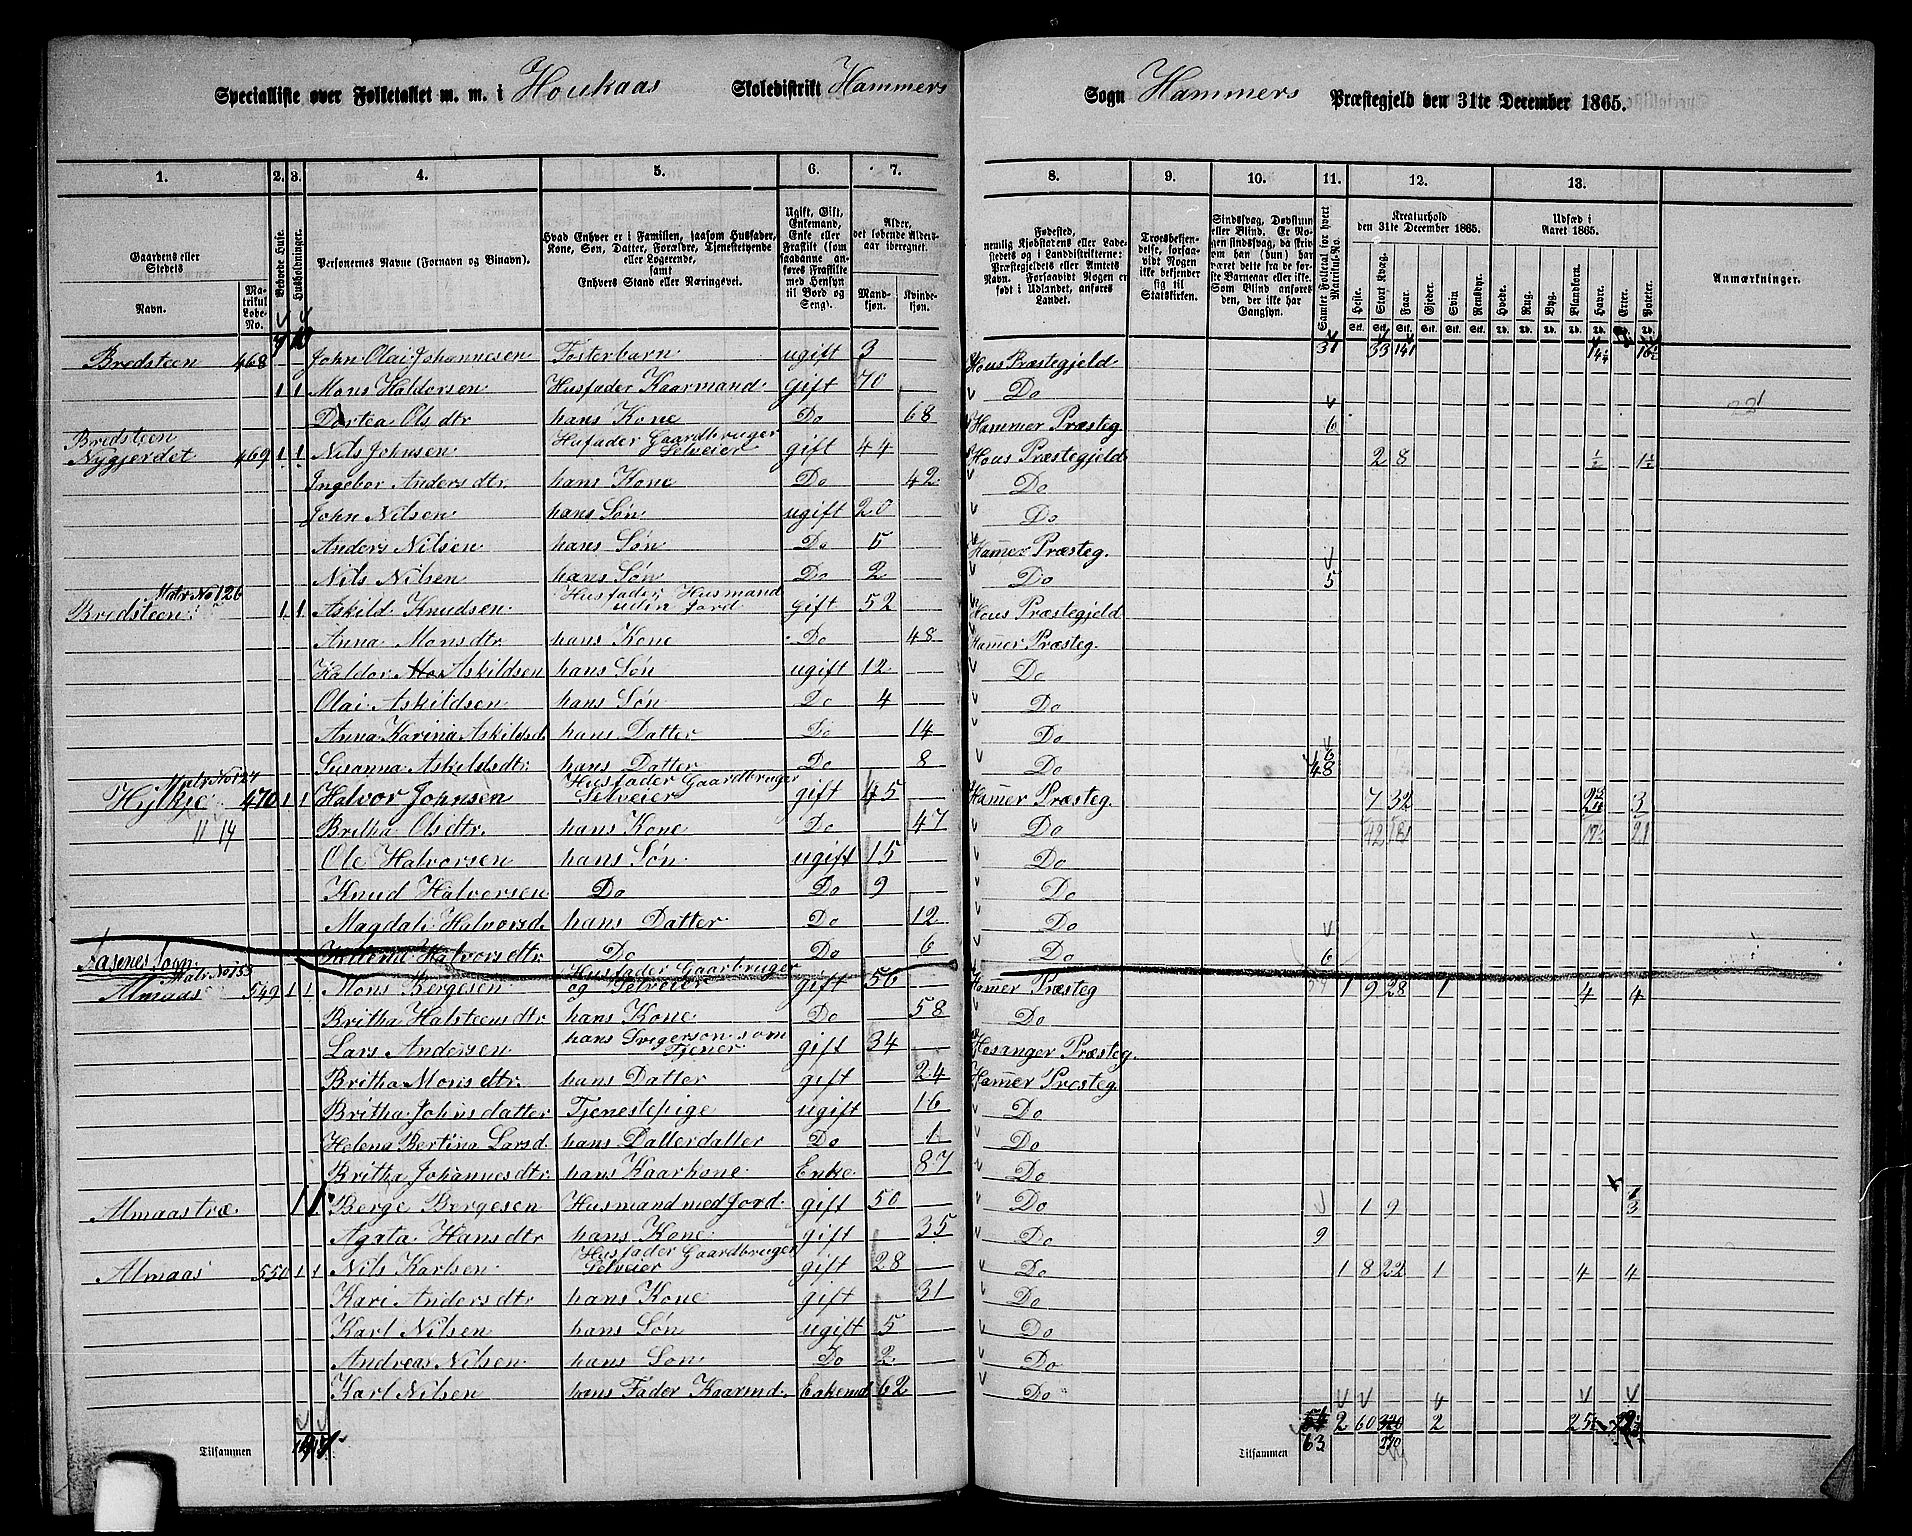 Specialliste over Folketallet m. m. i Houkaas Skoledistrikt Hammers Sogn Hammers Præstegjeld den 31te December 1865.
1. 2. 3. 4. 5. 6. 7. 8. 9. 10. 11. 12. 13.
Gaardens eller Stedets
Navn.
Matrikul Løbe-No.
Bebyede Huse.
Husholdninger.
Personernes Navne (Fornavn og Binavn).
Hvad Enhver er i Familien, saasom Husfader, Kone, Søn, Datter, Forældre, Tjenestetyende eller Logerende, samt Enhvers Stand eller Næringsvei.
Ugift, Gift, Enkemand, Enke eller Fraskilt (som saadanne anføres Fraskilte med Hensyn til Bord og Seng).
Alder, det løbende Aldersaar iberegnet.
Mandkjøn. Kvindekjøn.
Fødested, nemlig Kjøbstadens eller Ladestedets og i Landdistrikterne: Præstegjeldets eller Amtets Navn. Forsaavidt Nogen er født i Udlandet, anføres Landet.
Troesbekjendelse, forsaavidt Nogen ikke bekjender sig til Statskirken.
Sindssvag, Døvstum eller Blind. Er Nogen sindssvag, da skriv om han (hun) har været dette fra de første Barneaar eller ikke. Som Blind anføres den, der ikke har Gangsyn.
Samlet Folketal for hvert Matrikul-No.
Kreaturhold den 31te December 1865.
Heste. Stort Kvæg. Faar. Gjeder. Svin. Rensdyr.
Udsæd i Aaret 1865.
Hvede. Rug. Byg. Blandkorn. Havre. Erter. Poteter.
Anmærkninger.
Bredsteen 468 John Olai Johannesen Fosterbarn ugift 3 Hous Præstegjeld 31 33 141
1 1 Mons Haldorsen Husfader Kaarmand gift 70 Do
Dortea Olsdtr hans Kone Do 68 Hammer Præsteg 6
Bredsteen
Nygjerdet 469 1 1 Nils Johnsen Husfader Gaardbruger Selveier gift 44 Hous Præstegjeld 2 8 ½ 1½
Ingebor Andersdtr hans Kone Do 42 Do
John Nilsen hans Søn ugift 20 Do
Anders Nilsen hans Søn Do 5 Hamer Præsteg.
Nils Nilsen hans Søn Do 2 Do 5
Matr No 126
Bredsteen 1 1 Askild Knudsen Husfader Husmand uden Jord gift 52 Hous Præstegjeld
Anna Monsdtr hans Kone Do 48 Hamer Præsteg.
Haldor Askildsen hans Søn ugift 12 Do
Olai Askildsen hans Søn Do 4 Do
Anna Karina Askildsd hans Datter Do 14 Do
Susanna Askildsdtr. hans Datter Do 8 Do 6 48
Matr No 127
Hylkje 470 1 1 Halvor Johnsen Husfader Gaardbruger Selveier gift 45 Hamer Præsteg. 7 32 3
11 14 Britha Olsdtr. hans Kone Do 47 Do 42 181 21
Ole Halvorsen hans Søn ugift 15 Do
Knud Halvorsen Do Do 9 Do
Magdali Halvorsd. hans Datter Do 12 Do
Halvorsdtr. Do Do 6 Do 6
Aasenes Sogn
Matr No 153
Almaas 549 1 1 Mons Bergesen Husfader Gaarbruger og Selveier gift 56 Hamer Præsteg 1 9 28 1 4 4
Britha Halsteensdtr hans Kone Do 58 Do
Lars Andersen hans Svigerson som Tjener gift 34 Hosanger Præsteg.
Britha Monsdtr. hans Datter gift 24 Hamer Præsteg.
Britha Johnsdatter Tjenestepige ugift 16 Do
Helena Bertina Larsd. hans Datterdatter Do 1 Do
Britha Johannesdtr. hans Kaarkone Enke 87 Do
Almaastræ. 1 1 Berge Bergesen Husmand med Jord. gift 50 Do 1 9 3
Agata Hansdtr hans Kone gift 35 Do 9
Almaas 550 1 1 Nils Karlsen Husfader Gaardbruger Selveier gift 28 Do 1 8 22 1 4 4
Kari Andersdtr hans Kone gift 31 Do
Karl Nilsen hans Søn ugift 5 Do
Andreas Nilsen hans Son Do 2 Do
Karl Nilsen hans Fader Kaarmd. Enkemd 62 Do
Tilsammen Tilsammen 63 2 60 2